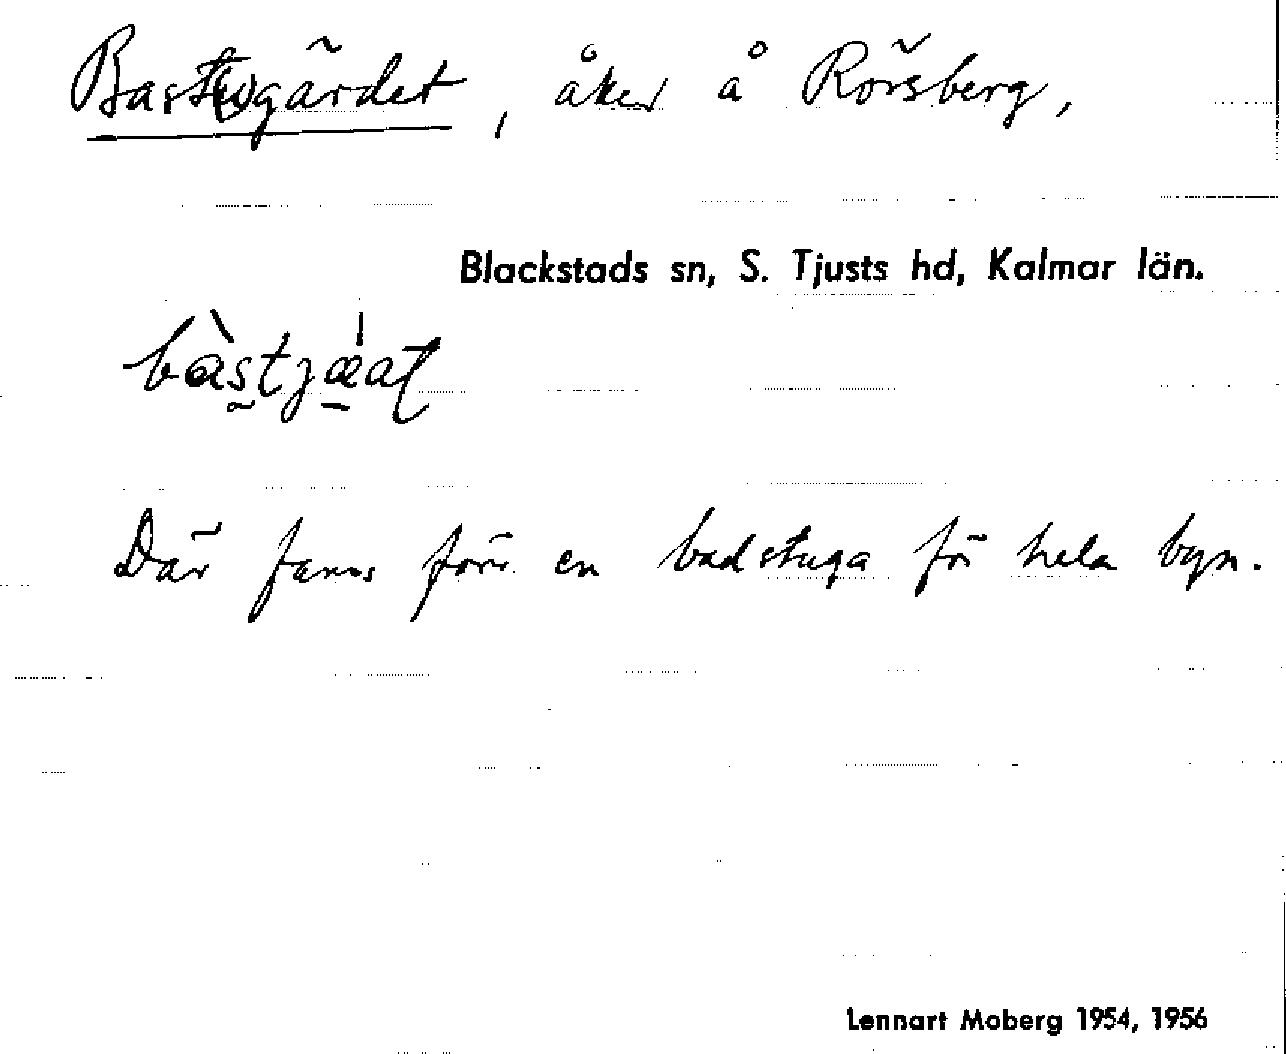 Bast(u)gärdet, åker å Rörsberg,
Blackstads sn, S. Tjusts hd, Kalmar län.
Där fanns förr en badstuga för hela byn.
Lennart Moberg 1954, 1956